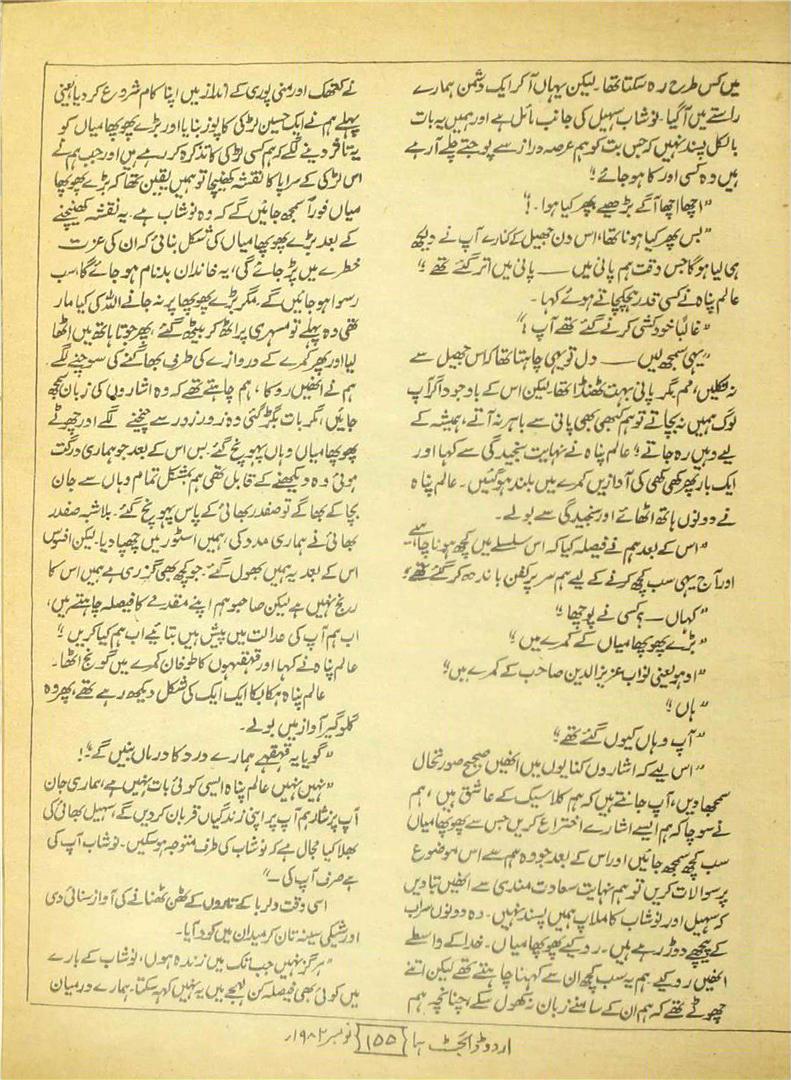 میں کس طرح رہ سکتا تھا۔ لیکن یہاں آ کر ایک دشمن ہمارے
راستے میں آ گیا۔ نوشاب سہیل کی جانب مائل ہے اور ہمیں یہ بات
بالکل پسند نہیں کہ جس بت کو ہم عرصہ دراز سے پوجتے چلے آ رہے
ہیں وہ کسی اور کا ہو جائے؟"
"اچھا اچھا آگے بڑھیے پھر کیا ہوا۔!"
"بس پھر کیا ہونا تھا، اس دن جھیل کے کنارے آپ نے دیکھ
ہی لیا ہوگا جس وقت ہم پانی میں ــــ پانی میں اتر گئے تھے؟"
عالم پناہ نے کسی قدر ہچکچاتے ہوئے کہا۔
"غالباً خودکشی کرنے گئے تھے آپ!"
"یہی سمجھ لیں ــــ دل تو یہی چاہتا تھا کہ اس جھیل سے
نہ نکلیں، مگر پانی بہت ٹھنڈا تھا لیکن اس کے باوجود اگر آپ
لوگ ہمیں نہ بچاتے تو ہم کبھی بھی پانی سے باہر نہ آتے، ہمیشہ کے
لیے وہیں رہ جاتے؟ عالم پناہ نے نہایت سنجیدگی سے کہا اور
ایک بار پھر کھی کھی کی آوازیں کمرے میں بلند ہوگئیں۔ عالم پناہ
نے دونوں ہاتھ اٹھائے اور سنجیدگی سے بولے۔
"اس کے بعد ہم نے فیصلہ کیا کہ اس سلسلے میں کچھ ہونا چاہیے
اور آج یہی سب کچھ کرنے کے لیے ہم سر پر کفن باندھ کر گئے تھے؟
"کہاں ــ؟ کسی نے پوچھا؟"
"بڑے پھوپھا میاں کے کمرے میں؟"
"اوہو یعنی نواب عزیز الدین صاحب کے کمرے میں؟"
"ہاں؟"
"آپ وہاں کیوں گئے تھے؟"
"اس لیے کہ اشاروں کنایوں میں انھیں صحیح صورتحال
سمجھا دیں، آپ جانتے ہیں کہ ہم کلاسیک کے عاشق ہیں، ہم
نے سوچا کہ ہم ایسے اشارے اختراع کریں جس سے پھوپھا میاں
سب کچھ سمجھ جائیں اور اس کے بعد جو وہ ہم سے اس موضوع
پر سوالات کریں تو ہم نہایت سعادت مندی سے انھیں بتا دیں
کہ سہیل اور نوشاب کا ملاپ ہمیں پسند نہیں۔ وہ دونوں سراب
کے پیچھے دوڑ رہے ہیں۔ روکیے پھوپھا میاں۔ خدا کے واسطے
انھیں روکیے۔ ہم یہ سب کچھ ان سے کہنا چاہتے تھے لیکن اتنے
چھوٹے تھے کہ ہم ان کے سامنے زبان نہ کھول سکے، چنانچہ ہم
نے کتھک اور منی پوری کے انداز میں اپنا کام شروع کر دیا یعنی
پہلے ہم نے ایک حسین لڑکی کا پوز بنایا اور بڑے پھوپھا میاں کو
یہ تاثر دینے لگے کہ ہم کسی لڑکی کا تذکرہ کر رہے ہیں اور جب ہم نے
اس لڑکی کے سراپا کا نقشہ کھینچا تو ہمیں یقین تھا کہ بڑے پھوپھا
میاں فوراً سمجھ جائیں گے کہ وہ نوشاب ہے۔ یہ نقشہ کھینچنے
کے بعد بڑے پھوپھا میاں کی شکل بنائی کہ ان کی عزت
خطرے میں پڑ جائے گی، یہ خاندان بدنام ہو جائے گا، سب
رسوا ہو جائیں گے۔ مگر بڑے پھوپھا پر نہ جانے اللہ کی کیا مار
تھی وہ پہلے تو مسہری پر اٹھ کر بیٹھ گئے، پھر جوتا ہاتھ میں اٹھا
لیا اور پھر کمرے کے دروازے کی طرف بھاگنے کی سوچنے لگے۔
ہم نے انھیں روکا، ہم چاہتے تھے کہ وہ اشاروں کی زبان سمجھ
جائیں، مگر بات بگڑ گئی وہ زور زور سے چیخنے لگے اور چھوٹے
پھوپھا میاں وہاں پہونچ گئے۔ بس اس کے بعد جو ہماری درگت
ہوئی وہ دیکھنے کے قابل تھی ہم بمشکل تمام وہاں سے جان
بچا کے بھاگے تو صفدر بھائی کے پاس پہونچ گئے۔ بلاشبہ صفدر
بھائی نے ہماری مدد کی، ہمیں اسٹور میں چھپا دیا۔ لیکن افسوس
اس کے بعد یہ ہمیں بھول گئے۔ جو کچھ بھی گزری ہے ہمیں اس کا
رنج نہیں ہے لیکن صاحبو ہم اپنے مقدمے کا فیصلہ چاہتے ہیں،
اب ہم آپ کی عدالت میں پیش ہیں بتائیے اب ہم کیا کریں؟"
عالم پناہ نے کہا اور قہقہوں کا طوفان کمرے میں گونج اٹھا۔
عالم پناہ ہکا بکا ایک ایک کی شکل دیکھ رہے تھے، پھر وہ
گلوگیر آواز میں بولے۔
"گویا یہ قہقہے ہمارے درد کا درماں بنیں گے۔!"
"نہیں نہیں عالم پناہ ایسی کوئی بات نہیں ہے، ہماری جان
آپ پر نثار ہم آپ پر اپنی زندگیاں قربان کر دیں گے، سہیل بھائی کی
بھلا کیا مجال ہے کہ نوشاب کی طرف متوجہ ہو سکیں۔ نوشاب آپ کی
ہے صرف آپ کی ــ"
اسی وقت دلربا کے تاروں کے ٹھن ٹھنانے کی آواز سنائی دی
اور شیکی سینہ تان کر میدان میں کود آیا۔
"ہرگز نہیں جب تک میں زندہ ہوں، نوشاب کے بارے
میں کوئی بھی فیصلہ کن لہجے میں یہ نہیں کہہ سکتا۔ ہمارے درمیان
اردو ڈائجسٹ ہما {۱۵۵} نومبر ۱۹۸۲ء